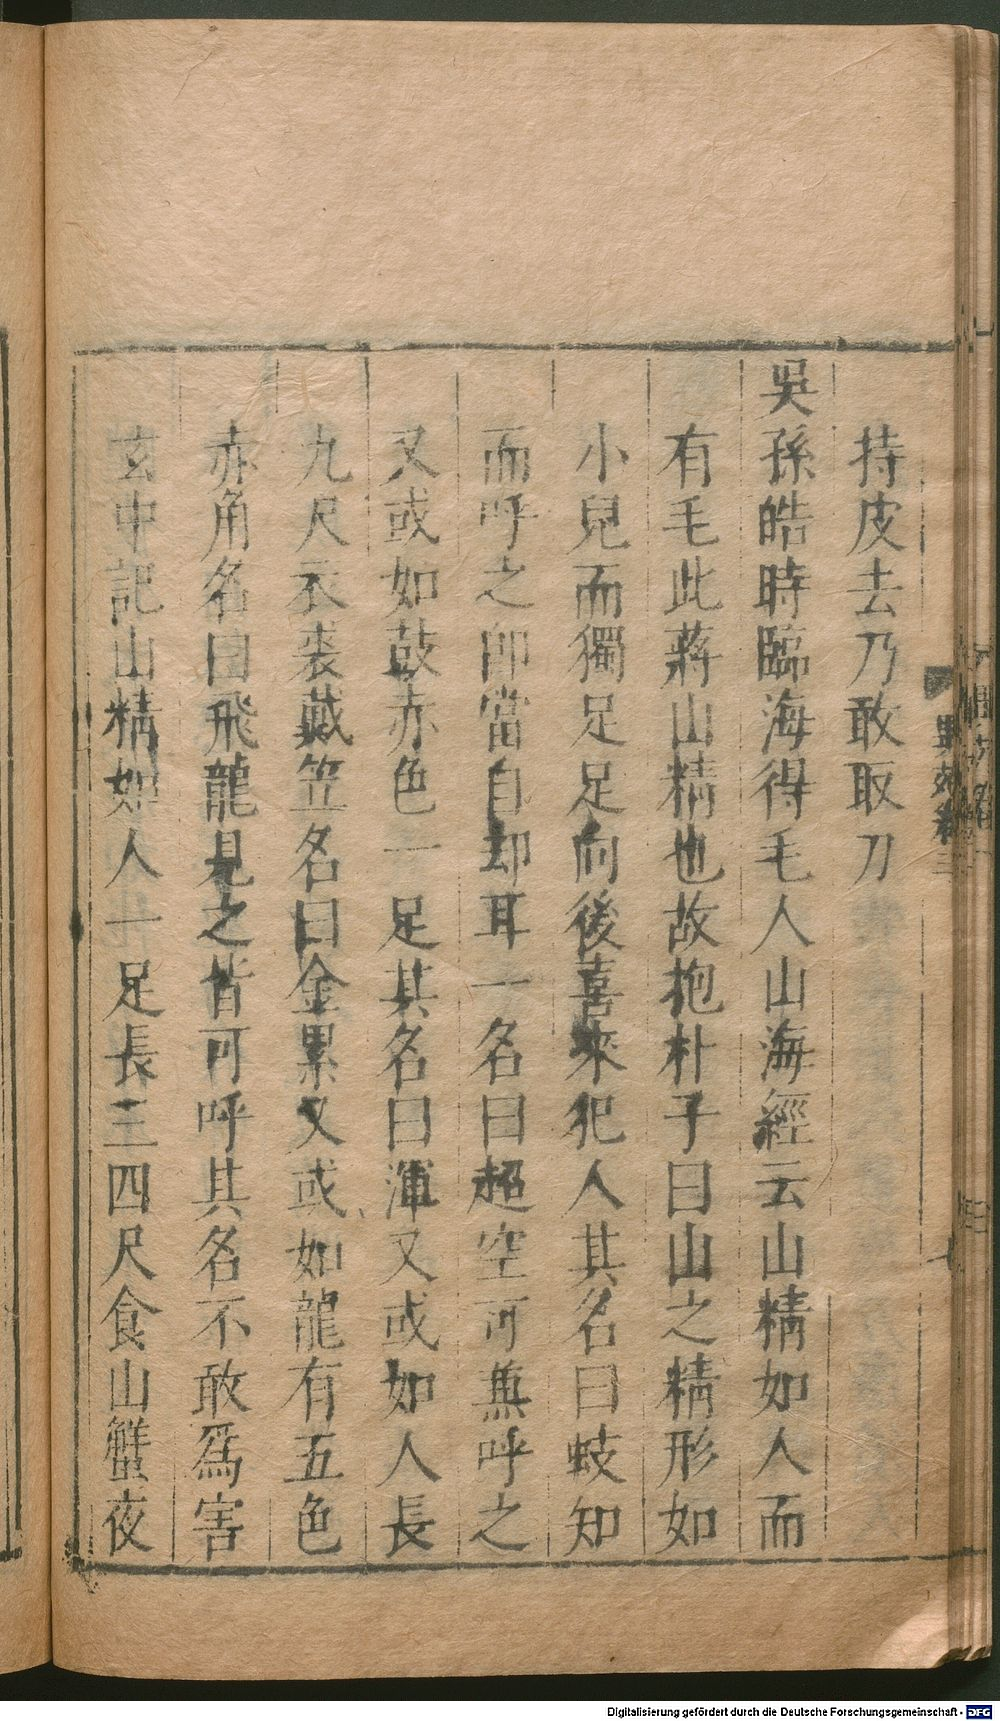 持皮去乃敢取刀
吳孫皓時臨海得毛人山海經云山精如人而
有毛此蔣山精也故抱朴子曰山之精形如
小兒而獨足足向後喜來犯人其名曰蚑知
而呼之即當自却耳一名曰超空可兼呼之
又或如鼓赤色一足其名曰渾又或如人長
九尺衣裘戴笠名曰金累又或如龍有五色
赤角名曰飛龍見之皆可呼其名不敢爲害
玄中記山精如人一足長三四尺食山蟹夜
異苑卷三
Digitalisierung gefördert durch die Deutsche Forschungsgemeinschaft - DFG